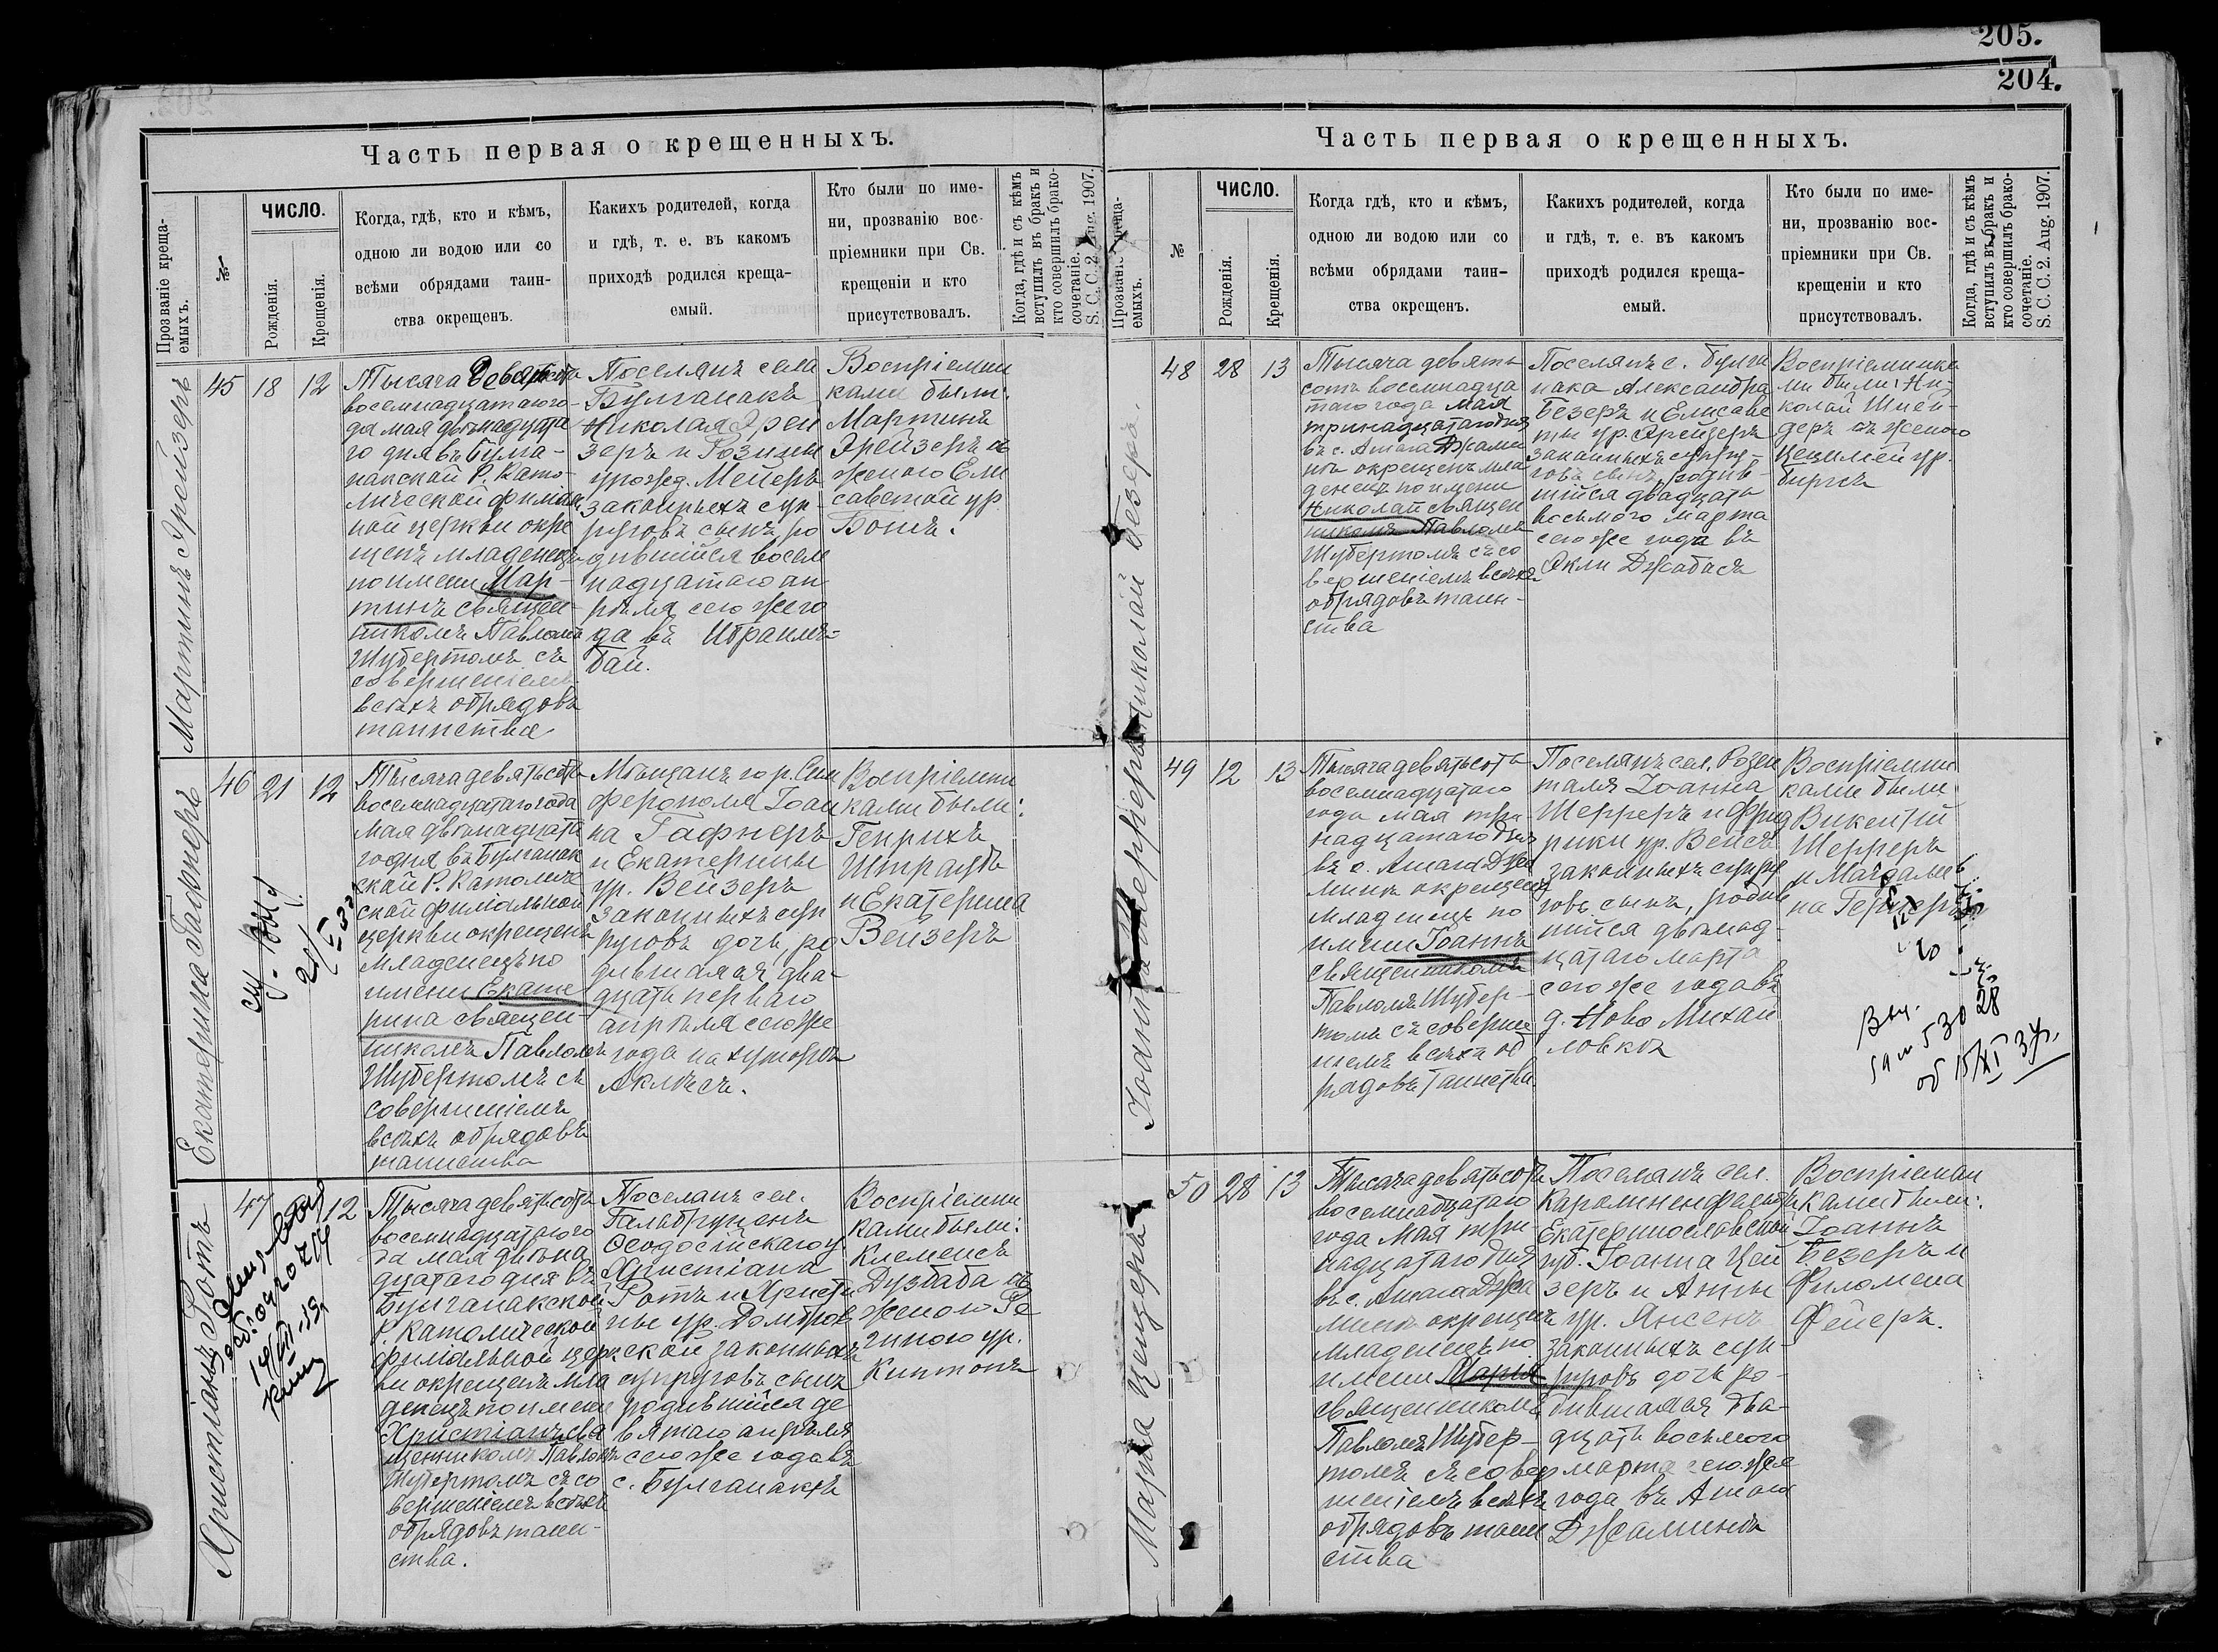 205.
204.
Часть первая о крещенныхъ.
Прозваніе креща-
емыхъ.
№
ЧИСЛО.
Рожденія.
Крещенія.
Когда, гдѣ, кто и кѣмъ,
одною ли водою или со
всѣми обрядами таин-
ства окрещенъ.
Какихъ родителей, когда
и гдѣ, т. е. въ какомъ
приходѣ родился креща-
емый.
Кто были по име-
ни, прозванію вос-
пріемники при Св.
крещеніи и кто
присутствовалъ.
Когда, гдѣ и съ кѣмъ
вступилъ въ бракъ и
кто совершилъ брако-
сочетаніе.
S. C. C. 2. Aug. 1907.
Мартинъ Эрейзеръ
45
18
12
Тысяча девятьсотъ
восемнадцатаго го-
да мая двѣнадцата
го дня въ Булга-
накской Р. Като-
лической филіаль
ной церкви окре
щенъ младенецъ
по имени Мар-
тинъ священ-
никомъ Павломъ
Шубертомъ съ
совершеніемъ
всѣхъ обрядовъ
таинства
Поселянъ села
Булганакъ
Николая Эрей
зеръ и Розины
урожд. Мейеръ
законныхъ суп-
руговъ сынъ, ро
дившійся восем
надцатаго ап
рѣля сего же го
да въ Ибраимъ-
бай.
Воспріемни
ками были:
Мартинъ
Эрейзеръ съ
женою Ели
саветой ур.
Бошъ.
Екатерина Гафнеръ
46
21
12
Тысяча девятьсотъ
восемнадцатаго года
мая двѣнадцата
го дня въ Булганак
ской Р. Католиче
ской филіальной
церкви окрещенъ
младенецъ по
имени Екате
рина священ-
никомъ Павломъ
Шубертомъ съ
совершеніемъ
всѣхъ обрядовъ
таинства
Мѣщанъ гор. Сим
ферополя Іоан
на Гафнеръ
и Екатерины
ур. Вейзеръ
законныхъ суп
руговъ дочь, ро
дившаяся два-
дцать перваго
апрѣля сего же
года на хуторѣ
Аклѣсъ.
Воспріемни
ками были:
Генрихъ
Штраубъ
и Екатерина
Вейзеръ
Христіанъ Ротъ
47
12
Тысяча девятьсотъ
восемнадцатаго го
да мая двѣна
дцатаго дня въ
Булганакской
Р. Католической
филіальной цер
кви окрещенъ мла
денецъ по имени
Христіанъ свя
щенникомъ Павломъ
Шубертомъ съ со
вершеніемъ всѣхъ
обрядовъ таин-
ства.
Поселянъ сел.
Гальбруненъ
Ѳеодосійскаго у.
Христіана
Ротъ и Христи
ны ур. Домбров
ской законныхъ
супруговъ сынъ
родившійся де
вятаго апрѣля
сего же года въ
с. Булганакѣ
Воспріемни
ками были:
Клеменсъ
Дузбаба съ
женою Ре
гиною ур.
Киптонъ
Часть первая о крещенныхъ.
емыхъ.
№
ЧИСЛО.
Рожденія.
Крещенія.
Когда гдѣ, кто и кѣмъ,
одною ли водою или со
всѣми обрядами таин-
ства окрещенъ.
Какихъ родителей, когда
и гдѣ, т. е. въ какомъ
приходѣ родился креща-
емый.
Кто были по име-
ни, прозванію вос-
пріемники при Св.
крещеніи и кто
присутствовалъ.
Когда, гдѣ и съ кѣмъ
вступилъ въ бракъ и
кто совершилъ брако-
сочетаніе.
S. C. C. 2. Aug. 1907.
Николай Безеръ.
48
28
13
Тысяча девять
сотъ восемнадца
таго года мая
тринадцатаго дня
въ с. Атага Джами
нъ окрещенъ мла
денецъ по имени
Николай священ
никомъ Павломъ
Шубертомъ съ со
вершеніемъ всѣхъ
обрядовъ таин-
ства
Поселянъ с. Булга
нака Александра
Безеръ и Елисаве
ты ур. Эрейзеръ
законныхъ супру-
говъ сынъ, родив-
шійся двадцать
восьмого марта
сего же года въ
Якли Джабасъ
Воспріемника
ми были: Ни-
колай Шней-
деръ съ женою
Цециліей ур.
Биргъ
Іоаннъ Шерреръ
49
12
13
Тысяча девятьсотъ
восемнадцатаго
года мая три-
надцатаго дня
въ с. Атага Джа
минъ окрещенъ
младенецъ по
имени Іоаннъ
священникомъ
Павломъ Шубер-
томъ съ соверше
ніемъ всѣхъ об
рядовъ таинства.
Поселянъ сел. Розен
таля Іоанна
Шерреръ и Фрид
рики ур. Вейсъ
законныхъ супру
говъ сынъ, родив
шійся двѣнад-
цатаго марта
сего же года въ
д. Ново Михай
ловкѣ
Воспріемни
ками были
Викентій
Шерреръ
и Магдале
на Гернеръ
530 28
об 15/XI 37г.
Марія Цейзеръ
50
28
13
Тысяча девятьсотъ
восемнадцатаго
года Мая три-
надцатаго дня
въ с. Атага Джа
минъ окрещенъ
младенецъ по
имени Марія
священникомъ
Павломъ Шубер-
томъ съ совер
шеніемъ всѣхъ
обрядовъ таин
ства
Поселянъ сел.
Каролиненфельдъ
Екатеринославской
губ. Іоанна Цей
зеръ и Анны
ур. Янсенъ
законныхъ суп-
руговъ дочь ро-
дившаяся два-
дцать восьмого
марта сего же
года въ Атага
Джаминѣ
Воспріемни
ками были:
Іоаннъ
Безеръ и
Филомена
Фейеръ.